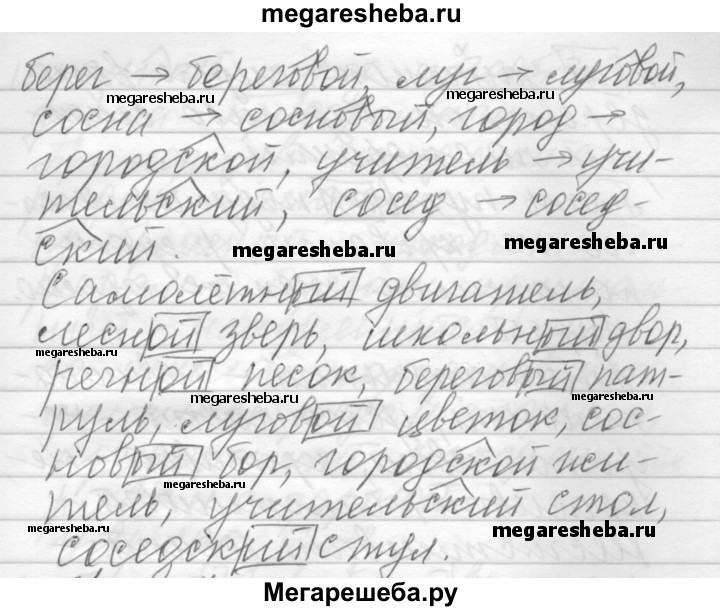 megaresheba.ru
берег → береговой, луг → луговой,
megaresheba.ru megaresheba.ru
сосна → сосновый, город →
городской, учитель → учи-
тельский, сосед → сосед-
ский.
megaresheba.ru megaresheba.ru
Самолётный двигатель,
лесной зверь, школьный двор,
megaresheba.ru
речной песок, береговый пат-
megaresheba.ru megaresheba.ru
руль, луговой цветок, сос-
новый бор, городской жи-
megaresheba.ru
тель, учительский стол,
megaresheba.ru megaresheba.ru
соседский стул.
Мегарешеба.ру